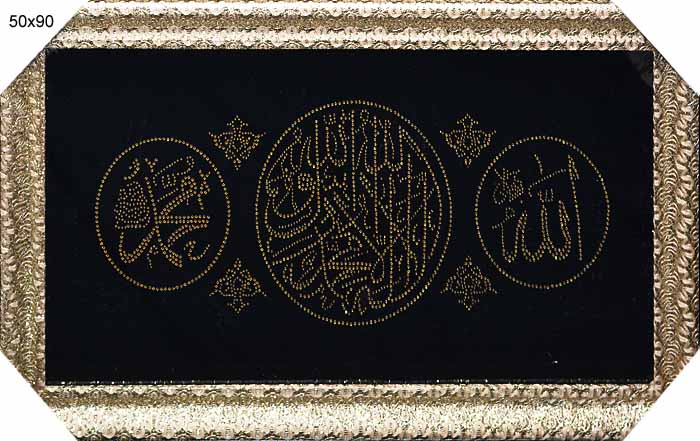 50x90
الله
لا إله إلا الله محمد رسول الله
محمد